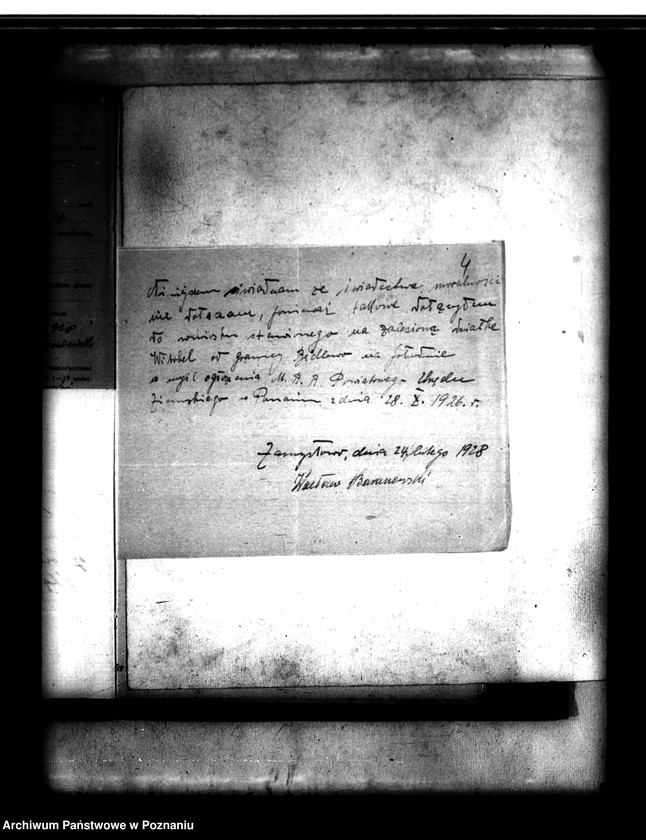 4
Niniejszem oświadczam że świadectwa moralności
nie dołączam, ponieważ takowe dołączyłem
do wniosku stawionego na zalesioną działkę
od granicy Bedlewo na południe
w myśl ogłoszenia Powiatowego Urzędu
Ziemskiego w Poznaniu z dnia 28. X. 1926. r.
Zamysłowo, dnia 24 lutego 1928
Wacław Baranowski
1928
Archiwum Państwowe w Poznaniu